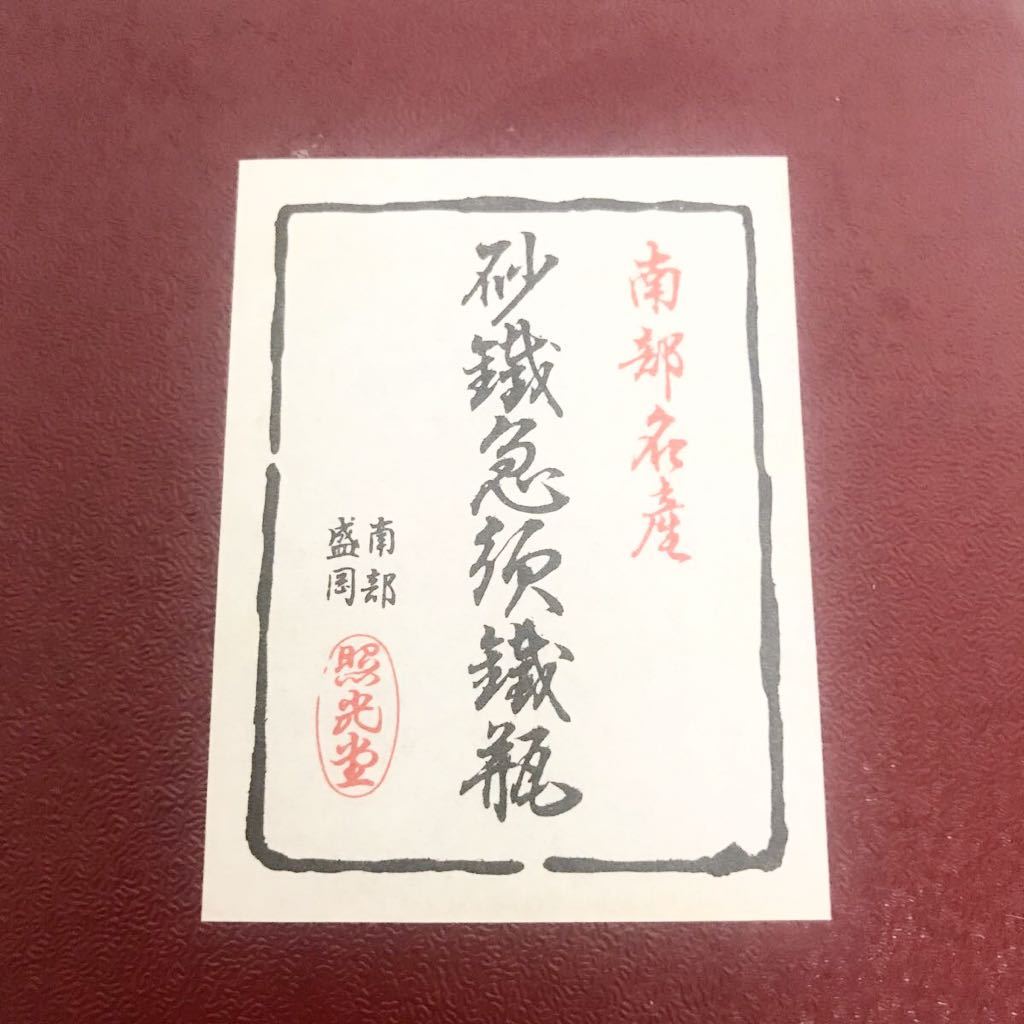 南部名産
砂鐵急須鐵瓶
南部
盛岡
照光堂